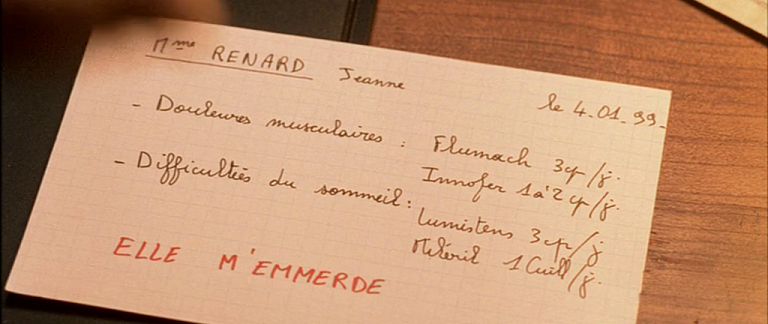 Mme RENARD Jeanne
le 4.01.99.
- Douleures musculaires : Flumach 3cp/j.
Innofer 1 à 2 cp/j.
- Difficultés du sommeil : Lumistens 3cp/j
1 Cuill/j.
ELLE M'EMMERDE